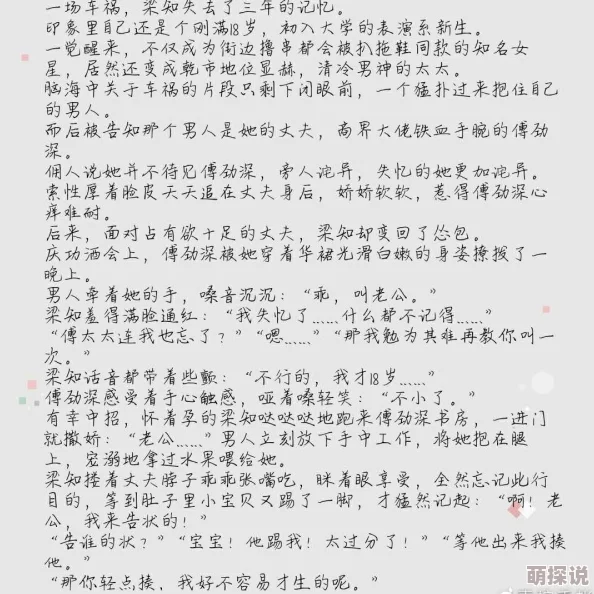 一场车祸，梁知失去了三年的记忆。
印象里自己还是个刚满18岁，初入大学的表演系新生。
一觉醒来，不仅成为街边撸串都会被扒拖鞋同款的知名女
星，居然还变成乾市地位显赫，清冷男神的太太。
脑海中关于车祸的片段只剩下闭眼前，一个猛扑过来抱住自己
的男人。
而后被告知那个男人是她的丈夫，商界大佬铁血手腕的傅劲
深。
佣人说她并不待见傅劲深，旁人诧异，失忆的她更加诧异。
索性厚着脸皮天天追在丈夫身后，娇娇软软，惹得傅劲深心
痒难耐。
后来，面对占有欲十足的丈夫，梁知却变回了怂包。
庆功酒会上，傅劲深被她穿着华裙光滑白嫩的身姿撩拨了一
晚上。
男人牵着她的手，嗓音沉沉：“乖，叫老公。”
梁知羞得满脸通红：“我失忆了……什么都不记得……”
“傅太太连我也忘了？”“嗯……”“那我勉为其难再教你叫一
次。”
梁知话音都带着些颤：“不行的，我才18岁……”
傅劲深感受着手心触感，哑着嗓轻笑：“不小了。”
有幸中招，怀着孕的梁知哒哒哒地跑来傅劲深书房，一进门
就撒娇：“老公……”男人立刻放下手中工作，将她抱在腿
上，宠溺地拿过水果喂给她。
梁知搂着丈夫脖子乖乖张嘴吃，眯着眼享受，全然忘记此行
目的，等到肚子里小宝贝又踢了一脚，才猛然记起：“啊！老
公，我来告状的！”
“告谁的状？”“宝宝！他踢我！太过分了！”“等他出来我揍
他。”
“那你轻点揍，我好不容易才生的呢。”
萌探说